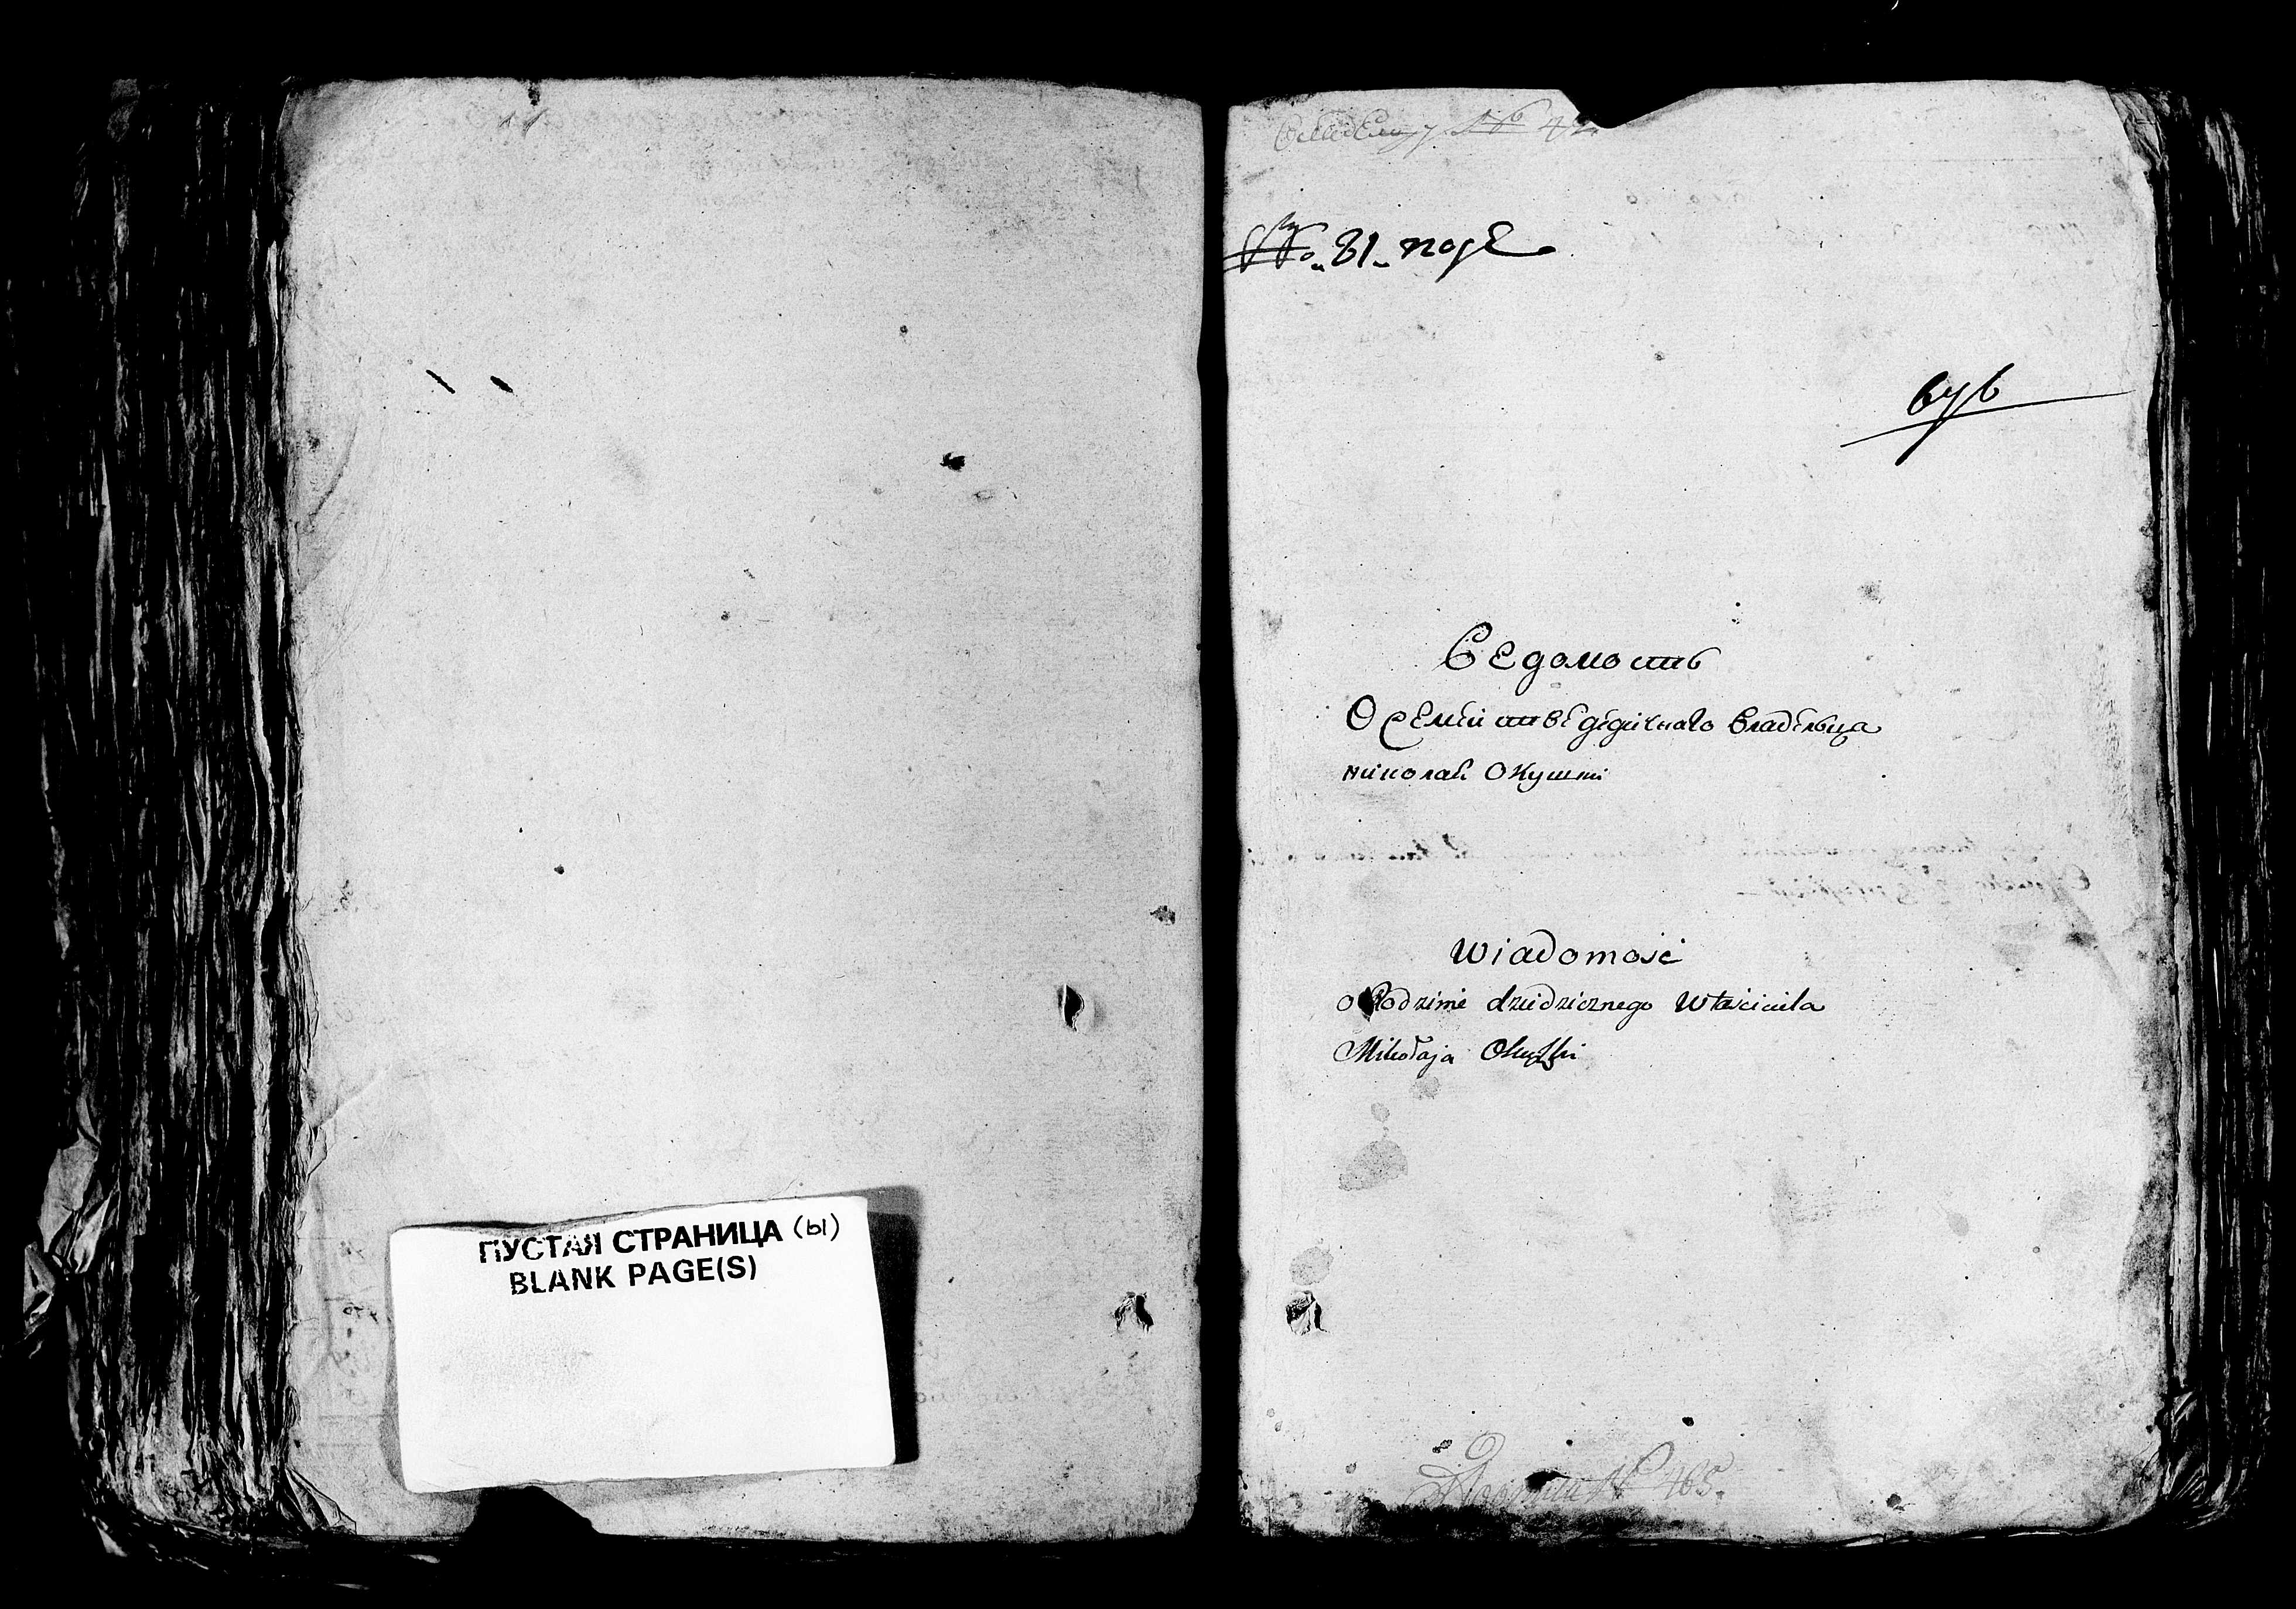 ПУСТАЯ СТРАНИЦА (ы)
BLANK PAGE(S)
№ 81
Ведомость
О Семействе дедичнаго владельца
николай Окушки
Wiadomość
o Rodzinie dziedzicznego Właściciela
Mikołaja Okuszki
№ 465.